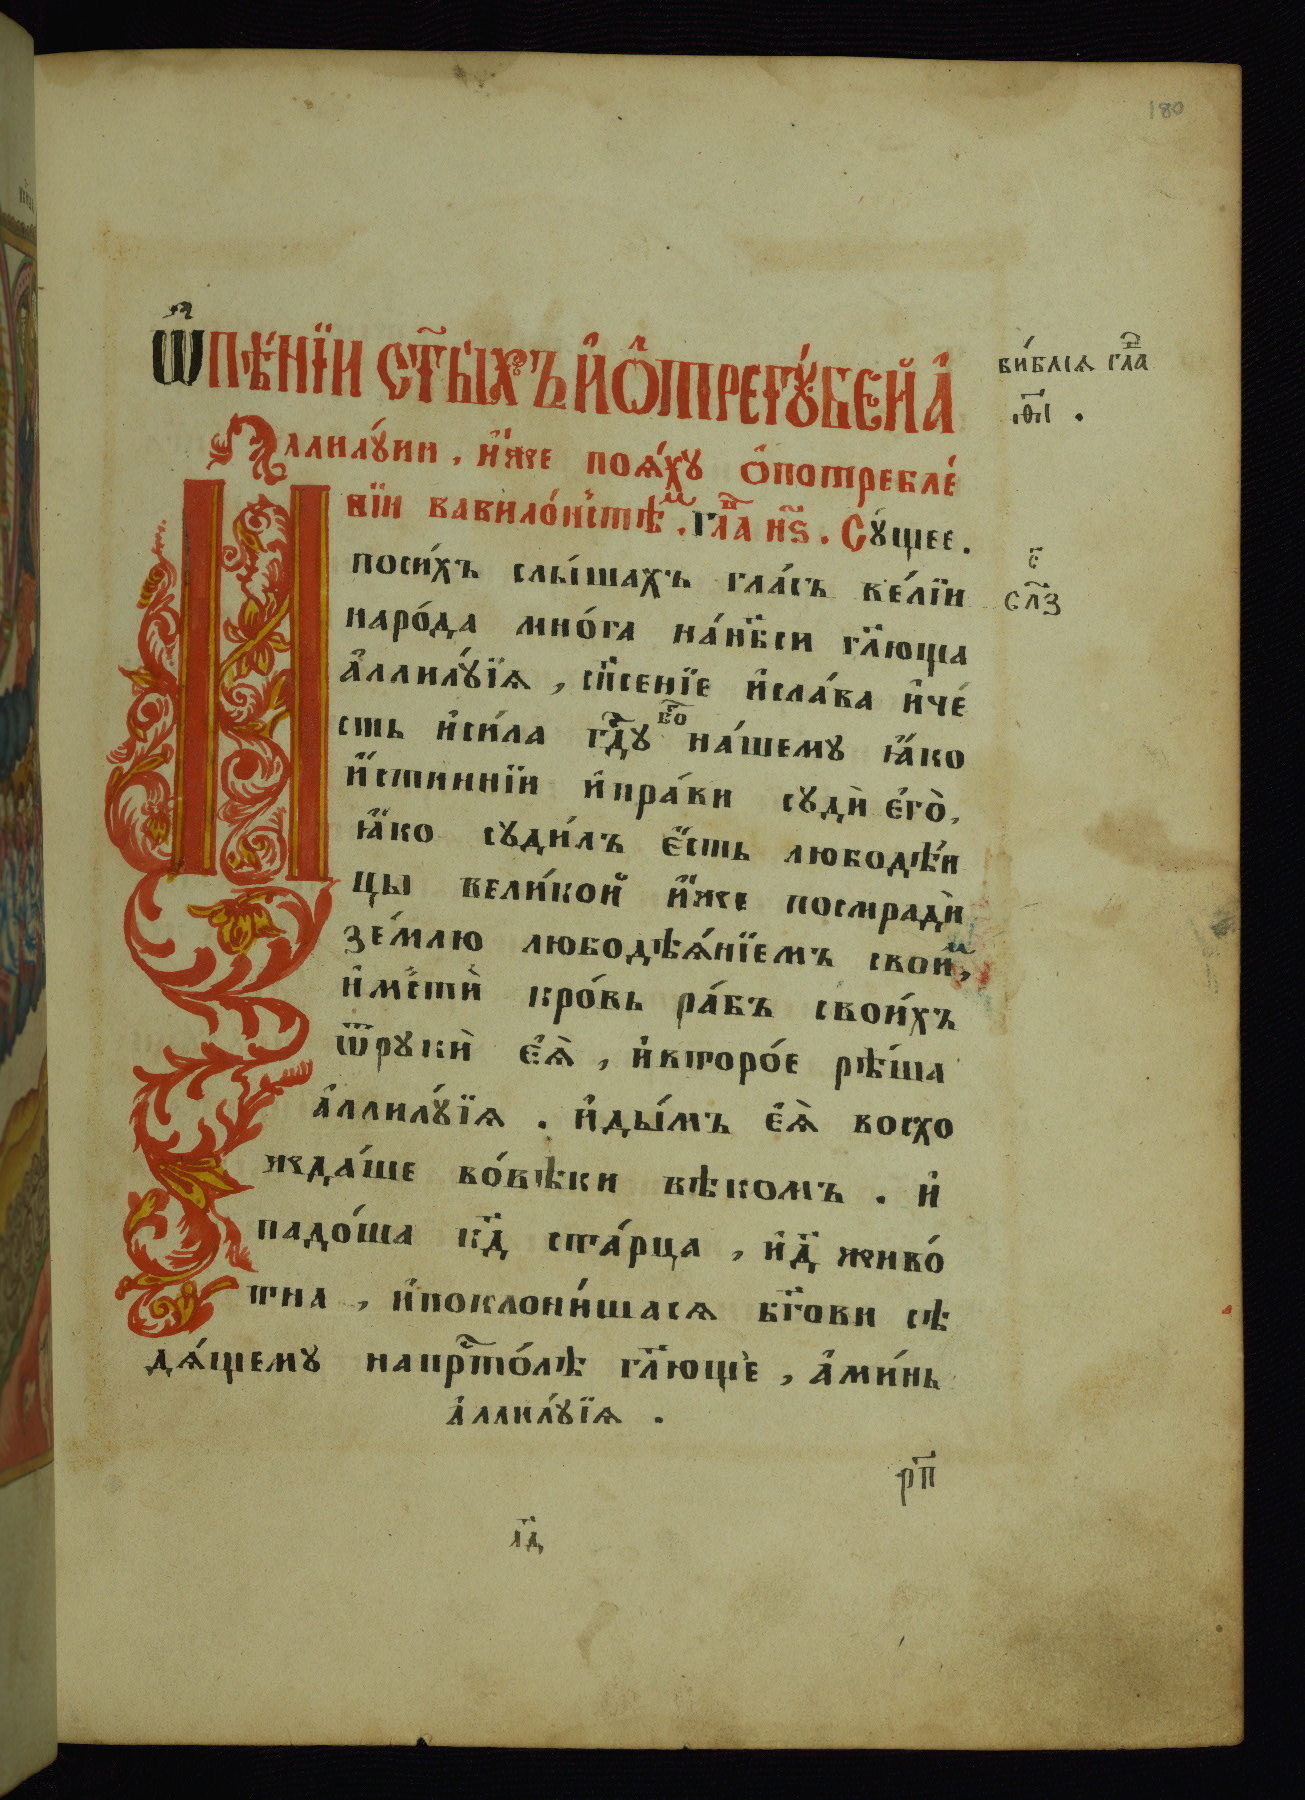 180
Ѡ пѣ́нїи ст҃ы́хъ и҆ ѡ҆ трегꙋ́бей а҆
ллилꙋ́ии, и҆́же поѧ́хꙋ ѻ҆ потребле́
нїи вавило́нстѣⷨ. гла҃в н҃ѕ. Сꙋ́щее.
По си́хъ слы́шахъ гла́съ ве́лїи
наро́да мно́га на́ нб҃си гл҃юща
а҆ллилꙋ́їѧ, сп҃сенїе и҆ сла́ва и҆ че́
сть и҆ си́ла гд҃ꙋ бг҃ꙋ на́шемꙋ ꙗ҆́ко
и҆́стиннїи и҆ пра́ви сꙋдѝ є҆гѡ̀,
ꙗ҆́ко сꙋди́лъ є҆́сть любодѣ́и
цы вели́кой и҆́же посмрадѝ
зе́млю любодѣѧ́нїемъ своиⷨ,
и҆ мстѝ кро́вь ра́бъ свои́хъ
ѿ рꙋкѝ є҆ѧ̀, и҆ второ́е рѣ́ша
а҆ллилꙋ́їѧ. и҆ ды́мъ є҆ѧ̀ восхо
жда́ше во́ вѣки вѣкомъ. и҆
падо́ша к҃д ста́рца, и҆ д҃ живо́
тна, и҆ поклони́шасѧ бг҃ови сѣ
дѧ́щемꙋ на прⷭ҇то́лѣ гл҃юще, а҆ми́нь
а҆ллилꙋ́їѧ.
ви́блїѧ гла҃
.ѳ҃і.
сл҃з
р҃п
л҃д